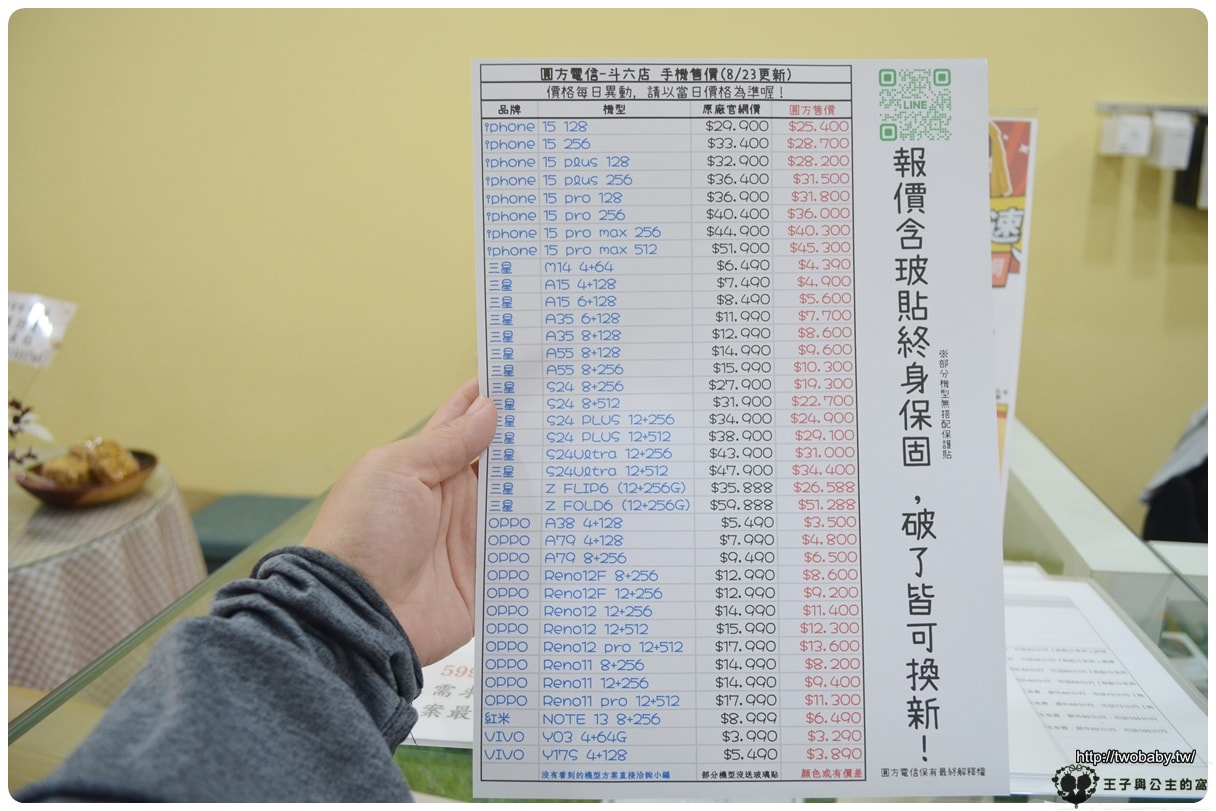 圓方電信-斗六店 手機售價(8/23更新)
價格每日異動, 請以當日價格為準喔!
品牌 機型 原廠官網價 圓方售價
iphone 15 128 $29.900 $25.400
iphone 15 256 $33.400 $28.700
iphone 15 plus 128 $32.900 $28.200
iphone 15 plus 256 $36.400 $31.500
iphone 15 pro 128 $36.900 $31.800
iphone 15 pro 256 $40.400 $36.000
iphone 15 pro max 256 $44.900 $40.300
iphone 15 pro max 512 $51.900 $45.300
三星 M14 4+64 $6.490 $4.390
三星 A15 4+128 $7.490 $4.900
三星 A15 6+128 $8.490 $5.600
三星 A35 6+128 $11.990 $7.700
三星 A35 8+128 $12.990 $8.600
三星 A55 8+128 $14.990 $9.600
三星 A55 8+256 $15.990 $10.300
三星 S24 8+256 $27.900 $19.300
三星 S24 8+512 $31.900 $22.700
三星 S24 PLUS 12+256 $34.900 $24.900
三星 S24 PLUS 12+512 $38.900 $29.100
三星 S24Ultra 12+256 $43.900 $31.000
三星 S24Ultra 12+512 $47.900 $34.400
三星 Z FLIP6 (12+256G) $35.888 $26.588
三星 Z FOLD6 (12+256G) $59.888 $51.288
OPPO A38 4+128 $5.490 $3.500
OPPO A79 4+128 $7.990 $4.800
OPPO A79 8+256 $9.490 $6.500
OPPO Reno12F 8+256 $12.990 $8.600
OPPO Reno12F 12+256 $12.990 $9.200
OPPO Reno12 12+256 $14.990 $11.400
OPPO Reno12 12+512 $15.990 $12.300
OPPO Reno12 pro 12+512 $17.990 $13.600
OPPO Reno11 8+256 $14.990 $8.200
OPPO Reno11 12+256 $14.990 $9.400
OPPO Reno11 pro 12+512 $17.990 $11.300
紅米 NOTE 13 8+256 $8.999 $6.490
VIVO Y03 4+64G $3.990 $3.290
VIVO Y17S 4+128 $5.490 $3.890
沒有看到的機型方案直接洽詢小編 部分機型沒送玻璃貼 顏色或有價差
LINE
報價含玻貼終身保固，破了皆可換新！
※部分機型無搭配保護貼
圓方電信保有最終解釋權
速
599
需
案最
http://twobaby.tw/
王子與公主的窩